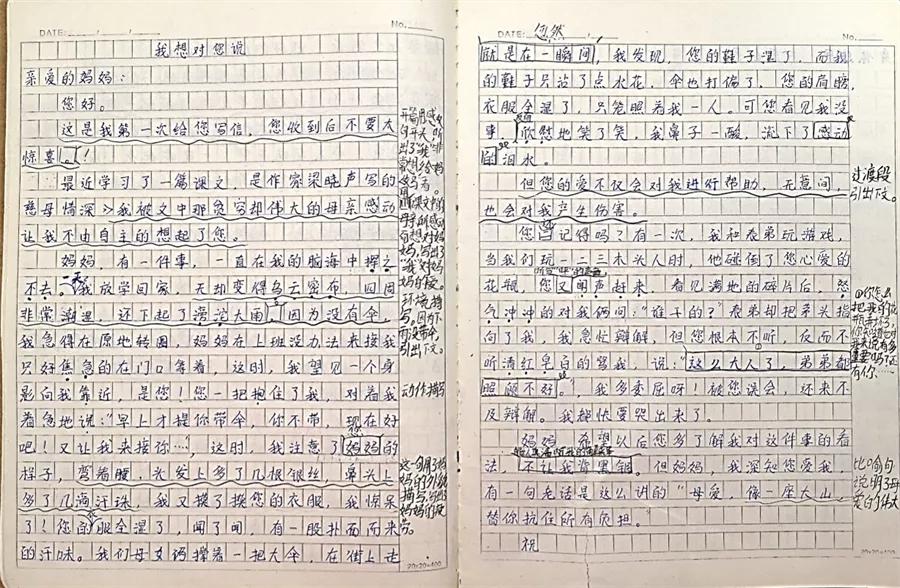 DATE: / /
No.
我想对您说
亲爱的妈妈：
您好。
这是我第一次给您写信，您收到后不要太
惊喜。！
最近学习了一篇课文，是作家梁晓声写的
慈母情深》我被文中那贫穷却伟大的母亲感动
让我不由自主的想起了您。
妈妈，有一件事，一直在我的脑海中挥之
不去。一天我放学回家，天却变得乌云密布，四周
非常潮湿，还下起了滂沱大雨，因为没有伞，
我急得在原地转圈，妈妈在上班没办法来接我
只好焦急的在门口等着，这时，我望见一个身
影向我靠近，是您！您一把抱住了我，对着我
着急地说："早上才提你带伞，你不带，现在好
吧！又让我来接你…"，这时，我注意了妈妈的
您
样子，弯着腰，头发上多了几根银丝，鼻头上
多了几滴汗珠，我又摸了摸您的衣服，我惊呆
了！您的衣服全湿了，闻了闻，有一股扑面而来
的汗味。我们母女俩撑着一把大伞，在街上走
环境描写，因为下雨没带伞，引出下文。
动作描写
20×20=400
DATE: / /
忽然
No.
就是在一瞬间，我发现，您的鞋子湿了，而我
的鞋子只沾了点水花，伞也打偏了，您的肩膀
衣服全湿了，只笼照着我一人。可您看见我没
事，欣然地笑了笑，我鼻子一酸，流下了感动
的泪水。
但您的爱不仅会对我进行帮助，无意间，
也会对我产生伤害。
过渡段
引出下文。
您还记得吗？有一次，我和表弟玩游戏，
当我们玩一二三木头人时，他碰倒了您心爱的
花瓶，您又闻声赶来，看见满地的碎片后，怒
气冲冲的对我俩问："谁干的？"表弟却把矛头指
向了我，我急忙辩解，但您根本不听，反而不
听清红皂白的骂我，说："这么大人了，弟弟都
照顾不好。"，我多委屈呀！被您误会，还来不
及辩解。我都快要哭出来了。
妈妈，希望以后您多了解我对这件事的看
法，不让我背黑锅。但妈妈，我深知您爱我，
有一句老话是这么讲的"母爱，像一座大山，
替你抗住所有负担。"
比喻句
说明了母
爱的伟大
祝
20×20=400